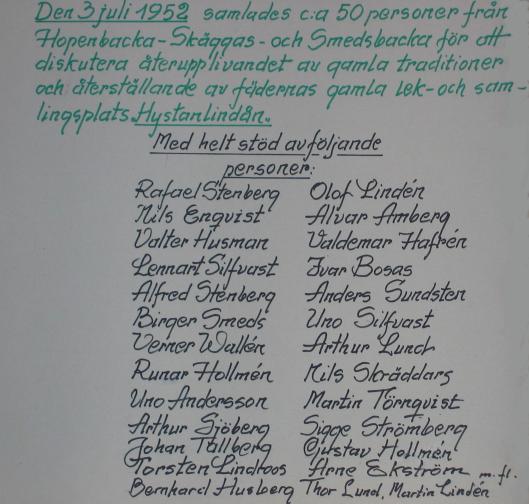 Den 3 juli 1952 samlades c:a 50 personer från
Hopenbacka-Skäggas- och Smedsbacka för att
diskutera återupplivandet av gamla traditioner
och återställande av fädernas gamla lek- och sam-
lingsplats. Hystanlindån.
Med helt stöd av följande
personer:
Rafael Stenberg Olof Lindén
Nils Enqvist Alvar Amberg
Valter Husman Valdemar Hafrén
Lennart Silfvast Ivar Bosas
Alfred Stenberg Anders Sundsten
Birger Smeds Uno Silfvast
Verner Wallén Arthur Lund
Runar Hollmén Nils Skräddars
Uno Andersson Martin Törnqvist
Arthur Sjöberg Sigge Strömberg
Johan Tallberg Gustav Hollmén
Torsten Lindroos Arne Ekström m. fl.
Bernhard Husberg Thor Lund, Martin Lindén